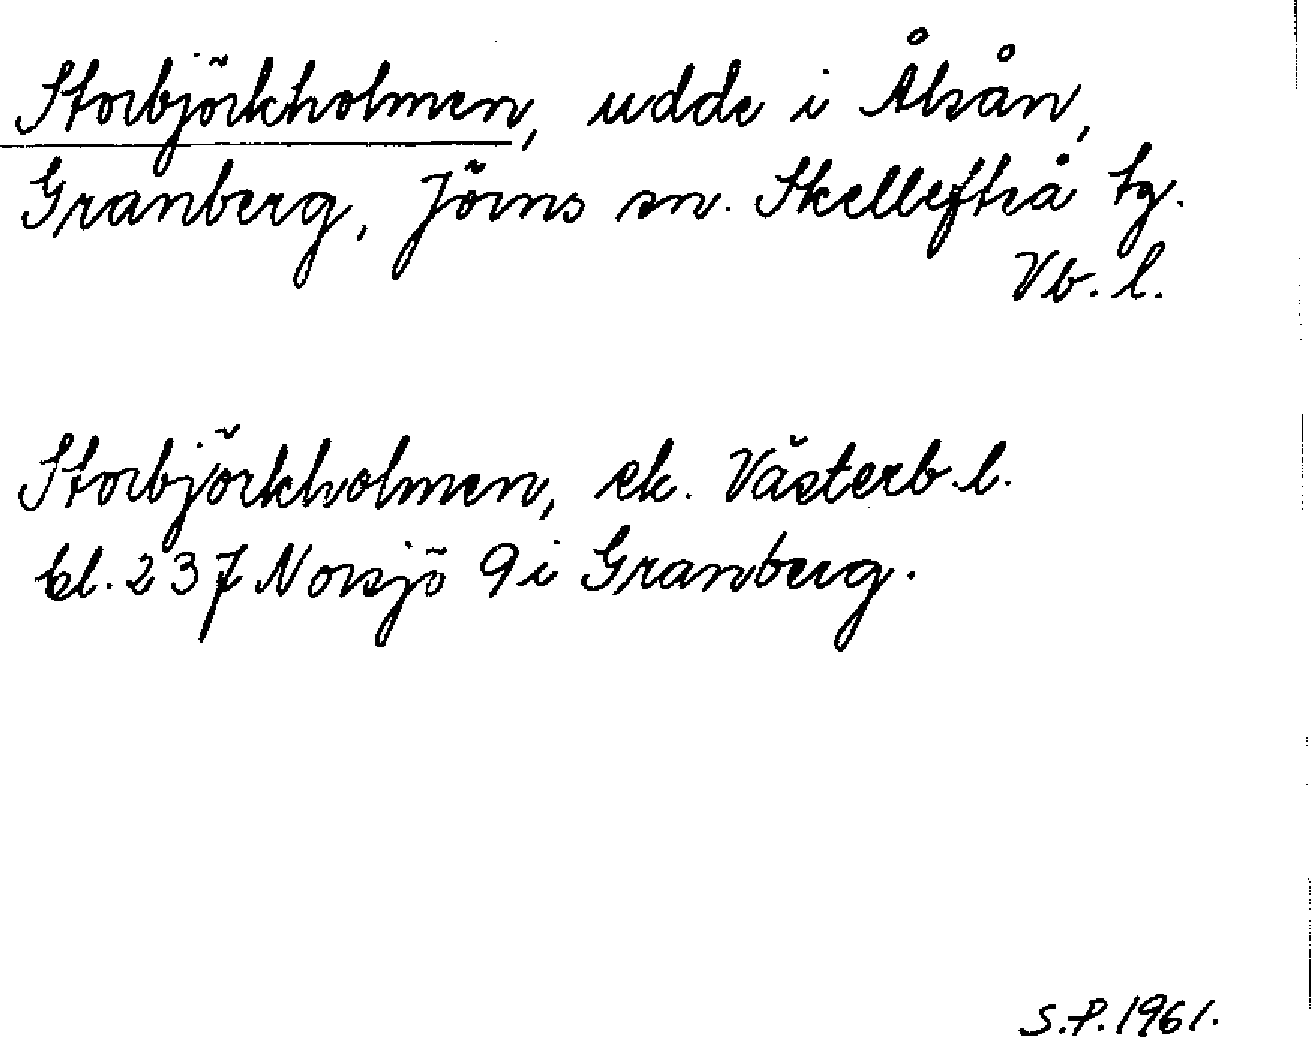 Storbjörkholmen, udde i Åliån,
Granberg, Jörns sn. Skellefteå tg.
Vb. l.
Storbjörkholmen, ek. Västerb. l.
bl. 237 Norsjö 9 i Granberg.
S.P. 1961.